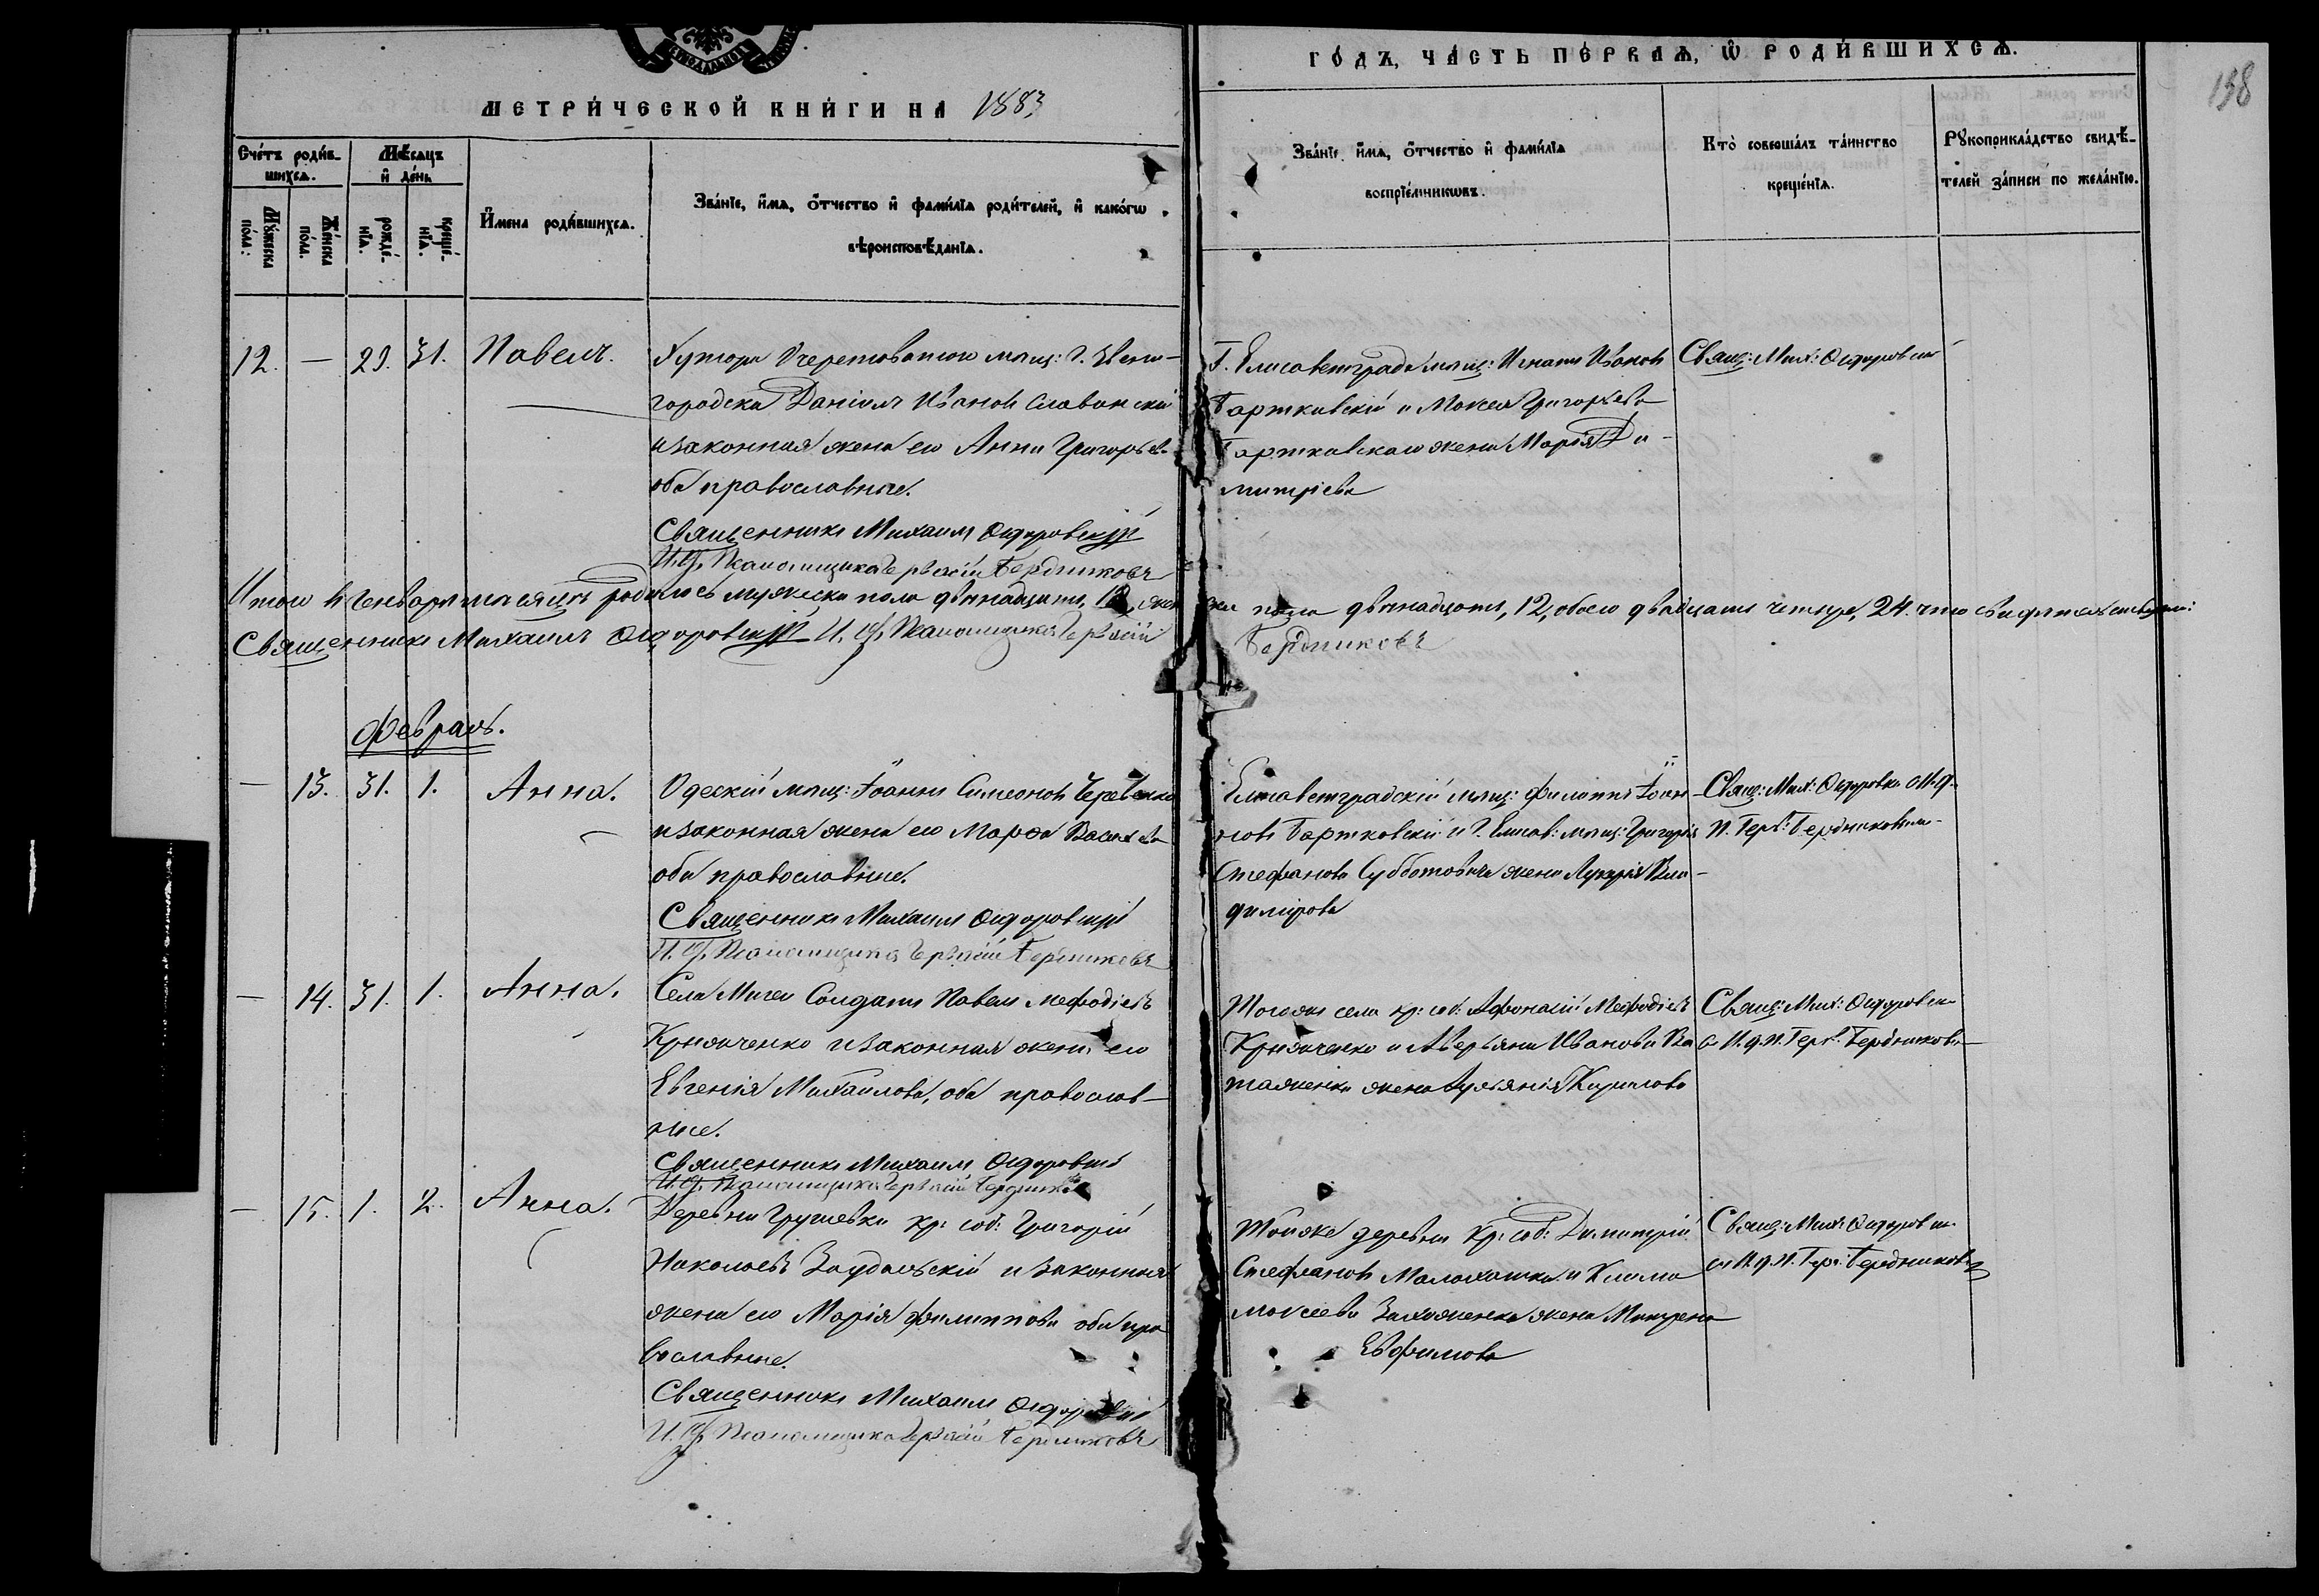 МЕТРИ́ЧЕСКОЙ КНИ́ГИ НА 1883
ГО́ДЪ, ЧА́СТЬ ПЕ́РВАѦ, Ѡ РОДИ́ВШИХСѦ.
138
Сче́тъ роди́в-
шихсѧ.
Мꙋ́жеска
по́ла:
Же́нска
по́ла.
Мѣ́сѧцъ
и҆ де́нь
рожде́-
нїѧ.
креще́-
нїѧ.
И҆мена роди́вшихсѧ.
Зва́нїе, и҆́мѧ, о҆́тчество и҆ фами́лїѧ роди́телей, и҆ како́гѡ
вѣроисповѣ́данїѧ.
Зва́нїе, и҆́мѧ, о҆́тчество и҆ фами́лїѧ
воспрїе́мникѡвъ.
Кто̀ соверша́лъ та́инство
креще́нїѧ.
Рꙋкоприкла́дство свидѣ́-
телей за́писи по жела́нїю.
12. — 29. 31. Павелъ.
Хутора Очеретоватого мѣщ: г. Звени-
городска Даніилъ Ивановъ Славинскій
и законная жена его Анна Григорьева
оба православные.
Священникъ Михаилъ Ѳедоровскій
И. д. Псаломщика Гервасій Бердниковъ
Г. Елисаветграда мѣщ: Игнатій Ивановъ
Бартковскій и Моксея Григорьева
Бартковскаго жена Марія Ди-
митріева
Свящ: Мих: Ѳедоровскій
Итого въ Генварѣ мѣсяцѣ родилось мужеска пола двѣнадцать, 12, женска пола двѣнадцать, 12, обоего двадцать четыре, 24. что свидѣтельствуемъ:
Священникъ Михаилъ Ѳедоровскій И. д. Псаломщика Гервасій Бердниковъ
Февраль.
— 13. 31. 1. Анна.
Одескій мѣщ: Іоаннъ Симеоновъ Черевенко
и законная жена его Марѳа Васильева
оба православные.
Священникъ Михаилъ Ѳедоровскій
И. д. Псаломщика Гервасій Бердниковъ
Елисаветградскій мѣщ: Филиппъ Іоан-
новъ Бартковскій и г. Елисав: мѣщ: Григорія
Стефанова Субботовича жена Лукерія Вла-
димірова
Свящ: Мих: Ѳедоровскій и И. д.
П. Герв: Бердниковымъ
— 14. 31. 1. Анна.
Села Мигеи Солдатъ Павелъ Меѳодіевъ
Крыжченко и законная жена его
Евгенія Михаилова, оба православ-
ные.
Священникъ Михаилъ Ѳедоровскій
И. д. Псаломщика Гервасій Бердниковъ
Тогоже села кр: соб: Аѳонасій Меѳодіевъ
Крыжченко и Аверьяна Иванова
жена Кирилова
Свящ: Мих: Ѳедоровскій
и И. д. П. Герв: Бердниковъ
— 15. 1. 2. Анна.
Деревни Грушевки кр: соб: Григорій
Николаевъ и законная
жена его Марія Филиппова оба пра
вославные.
Священникъ Михаилъ Ѳедоровскій
И. д. Псаломщика Гервасій Бердниковъ
Тойже деревни кр: соб: Димитрій
Стефановъ и Клима
Моксеева жена
Евфимова
Свящ: Мих: Ѳедоровскій
и И. д. П. Герв: Бердниковъ